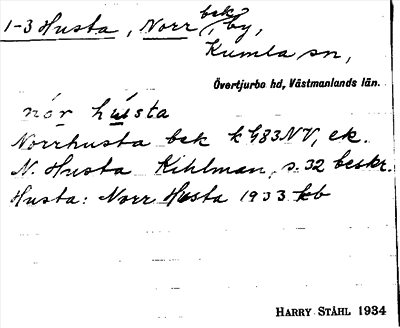 1-3 Husta, Norr bsk?, by,
Kumla sn,
Övertjurbo hd, Västmanlands län.
nór hústa
Norrhusta bsk k G83NV, ek.
N. Husta Kihlman, s. 32 beskr.
Husta: Norr Husta 1933 kb
HARRY STÅHL 1934